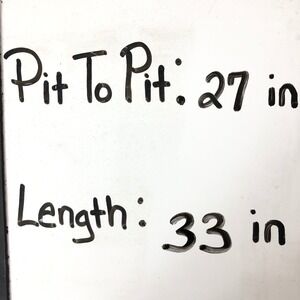 Pit To Pit: 27 in
Length: 33 in